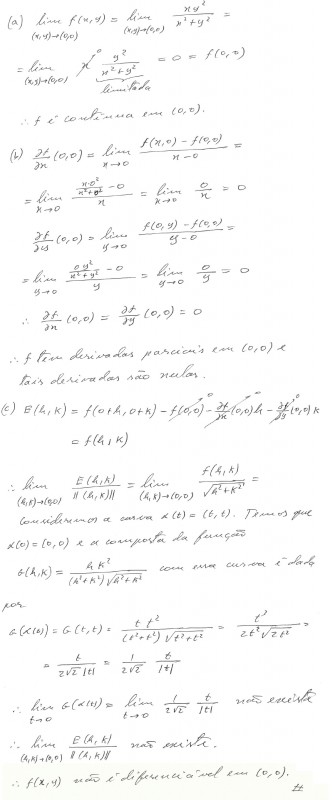 (a) lim_{(x,y)→(0,0)} f(x,y) = lim_{(x,y)→(0,0)} xy²/(x²+y²) =
= lim_{(x,y)→(0,0)} x y²/(x²+y²) = 0 = f(0,0)
limitada
∴ f é contínua em (0,0).
(b) ∂f/∂x (0,0) = lim_{x→0} (f(x,0) - f(0,0))/(x-0) =
= lim_{x→0} (x·0²/(x²+0²) - 0)/x = lim_{x→0} 0/x = 0
∂f/∂y (0,0) = lim_{y→0} (f(0,y) - f(0,0))/(y-0) =
= lim_{y→0} (0y²/(0²+y²) - 0)/y = lim_{y→0} 0/y = 0
∴ ∂f/∂x (0,0) = ∂f/∂y (0,0) = 0
∴ f tem derivadas parciais em (0,0) e
tais derivadas são nulas.
(c) E(h,k) = f(0+h,0+k) - f(0,0) - ∂f/∂x (0,0)h - ∂f/∂y (0,0)k
= f(h,k)
∴ lim_{(h,k)→(0,0)} E(h,k)/||(h,k)|| = lim_{(h,k)→(0,0)} f(h,k)/√(h²+k²) =
Consideremos a curva α(t) = (t,t). Temos que
α(0) = (0,0) e a composta da função
G(h,k) = hk²/((h²+k²)√(h²+k²)) com essa curva é dada
por
G(α(t)) = G(t,t) = t t²/((t²+t²)√(t²+t²)) = t³/(2t²√(2t²)) =
= t/(2√2 |t|) = 1/(2√2) t/|t|
∴ lim_{t→0} G(α(t)) = lim_{t→0} 1/(2√2) t/|t| não existe
∴ lim_{(h,k)→(0,0)} E(h,k)/||(h,k)|| não existe.
∴ f(x,y) não é diferenciável em (0,0).
#